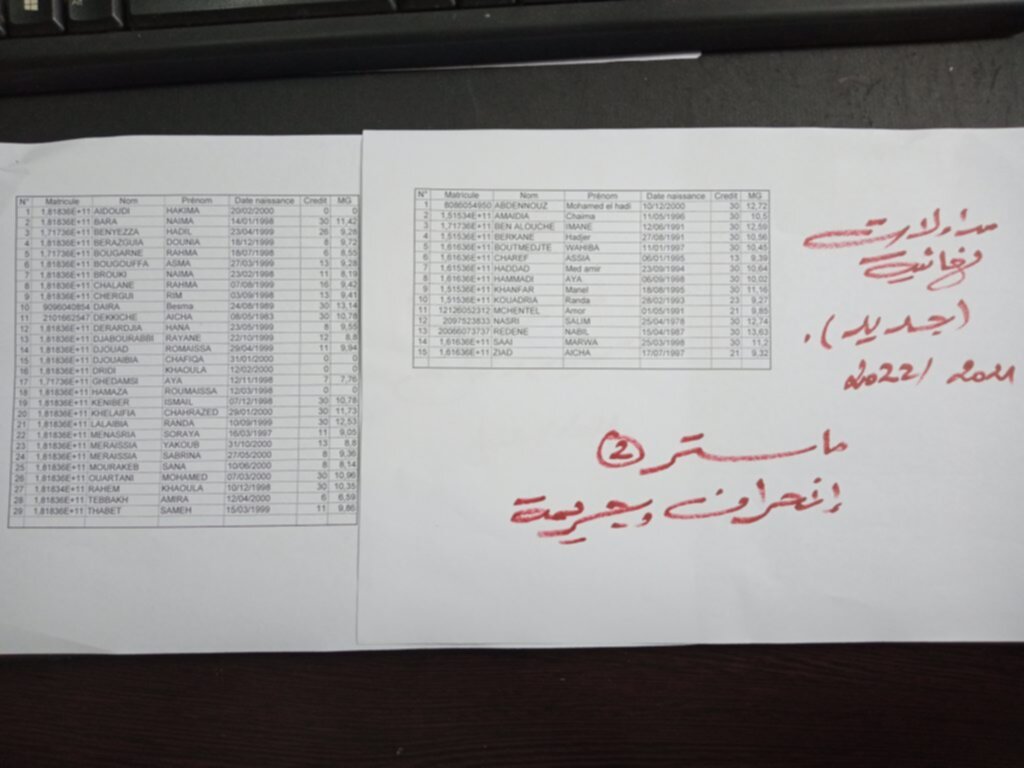 N° Matricule Nom Prénom Date naissance Credit MG
1 1,81836E+11 AIDOUDI HAKIMA 20/02/2000 0 0
2 1,81836E+11 BARA NAIMA 14/01/1998 30 11,42
3 1,71736E+11 BENYEZZA HADIL 23/04/1999 26 9,28
4 1,81836E+11 BERAZGUIA DOUNIA 18/12/1999 8 9,72
5 1,71736E+11 BOUGARNE RAHMA 18/07/1998 6 8,55
6 1,81836E+11 BOUGOUFFA ASMA 27/03/1999 13 9,28
7 1,81836E+11 BROUKI NAIMA 23/02/1998 11 8,19
8 1,81836E+11 CHALANE RAHMA 07/08/1999 16 9,42
9 1,81836E+11 CHERGUI RIM 03/09/1998 13 9,41
10 9096040854 DAIRA Besma 24/08/1989 30 13,14
11 2101662547 DEKKICHE AICHA 08/05/1983 30 10,78
12 1,81836E+11 DERARDJIA HANA 23/05/1999 8 9,55
13 1,81836E+11 DJABOURABBI RAYANE 22/10/1999 12 8,8
14 1,81836E+11 DJOUAD ROMAISSA 29/04/1999 11 9,94
15 1,81836E+11 DJOUAIBIA CHAFIQA 31/01/2000 0 0
16 1,81836E+11 DRIDI KHAOULA 12/02/2000 0 0
17 1,71736E+11 GHEDAMSI AYA 12/11/1998 7 7,76
18 1,81836E+11 HAMAZA ROUMAISSA 12/03/1998 0 0
19 1,81836E+11 KENIBER ISMAIL 07/12/1998 30 10,78
20 1,81836E+11 KHELAIFIA CHAHRAZED 29/01/2000 30 11,73
21 1,81836E+11 LALAIBIA RANDA 10/09/1999 30 12,53
22 1,81836E+11 MENASRIA SORAYA 16/03/1997 11 9,05
23 1,81836E+11 MERAISSIA YAKOUB 31/10/2000 13 8,8
24 1,81836E+11 MERAISSIA SABRINA 27/05/2000 8 9,36
25 1,81836E+11 MOURAKEB SANA 10/06/2000 8 8,14
26 1,81836E+11 OUARTANI MOHAMED 07/03/2000 30 10,96
27 1,81834E+11 RAHEM KHAOULA 10/12/1998 30 10,35
28 1,81836E+11 TEBBAKH AMIRA 12/04/2000 6 6,59
29 1,81836E+11 THABET SAMEH 15/03/1999 11 9,86
N° Matricule Nom Prénom Date naissance Credit MG
1 8086054950 ABDENNOUZ Mohamed el hadi 10/12/2000 30 12,72
2 1,51534E+11 AMAIDIA Chaima 11/05/1996 30 10,5
3 1,71736E+11 BEN ALOUCHE IMANE 12/06/1991 30 12,59
4 1,51536E+11 BERKANE Hadjer 27/08/1991 30 10,56
5 1,61636E+11 BOUTMEDJTE WAHIBA 11/01/1997 30 10,45
6 1,61636E+11 CHAREF ASSIA 06/01/1995 13 9,39
7 1,61536E+11 HADDAD Med amir 23/09/1994 30 10,64
8 1,61636E+11 HAMMADI AYA 06/09/1998 30 10,02
9 1,51536E+11 KHANFAR Manel 18/08/1995 30 11,16
10 1,51536E+11 KOUADRIA Randa 28/02/1993 23 9,27
11 12126052312 MCHENTEL Amor 01/05/1991 21 9,85
12 2097523833 NASRI SALIM 25/04/1978 30 12,74
13 20066073737 REDENE NABIL 15/04/1987 30 13,63
14 1,61636E+11 SAAI MARWA 25/03/1998 30 11,2
15 1,61636E+11 ZIAD AICHA 17/07/1997 21 9,32
مداولات
نهائية
(جديد).
2022/2021
ماستر 2
إنحراف وجريمة